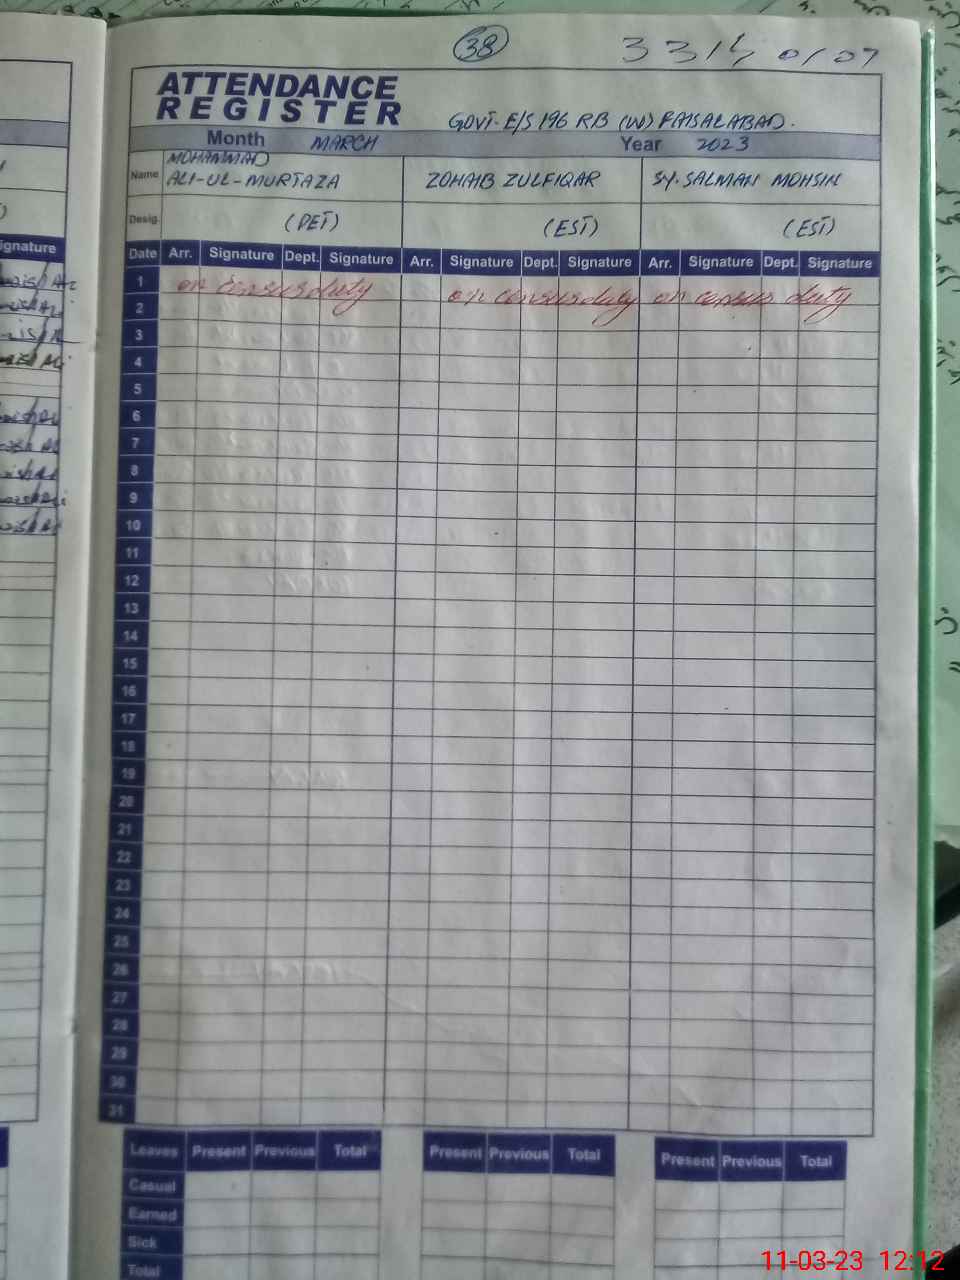 38
ATTENDANCE
REGISTER
GOVT. E/S 196 RB (W) FAISALABAD.
Month MARCH Year 2023
Name MOHAMMAD
ALI-UL-MURTAZA ZOHAIB ZULFIQAR SY. SALMAN MOHSIN
Desig. (PET) (EST) (EST)
Date Arr. Signature Dept. Signature Arr. Signature Dept. Signature Arr. Signature Dept. Signature
1 on census duty on census duty on census duty
2
3
4
5
6
7
8
9
10
11
12
13
14
15
16
17
18
19
20
21
22
23
24
25
26
27
28
29
30
31
Leaves Present Previous Total Present Previous Total Present Previous Total
Casual
Earned
Sick
Total
11-03-23 12:12